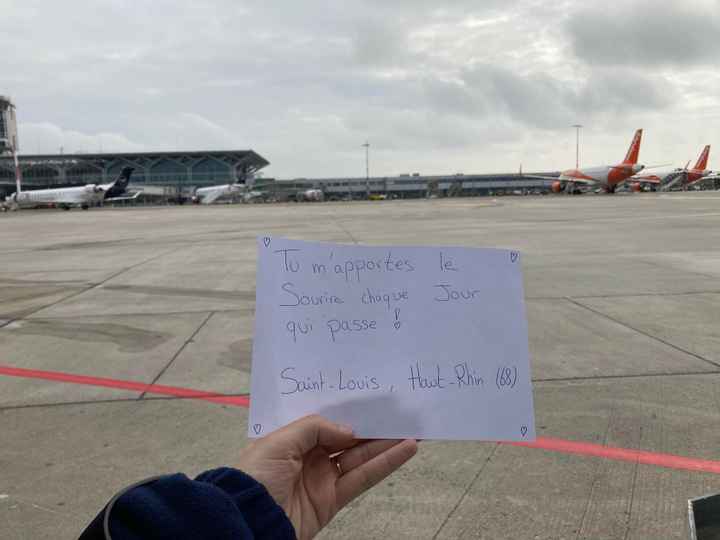 Tu m'apportes le
Sourire chaque Jour
qui passe !
Saint-Louis, Haut-Rhin (68)